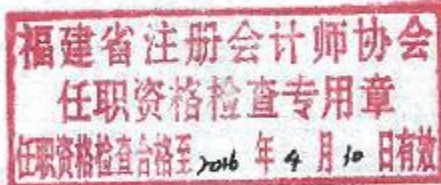 福建省注册会计师协会
任职资格检查专用章
任职资格检查合格至2016年4月10日有效